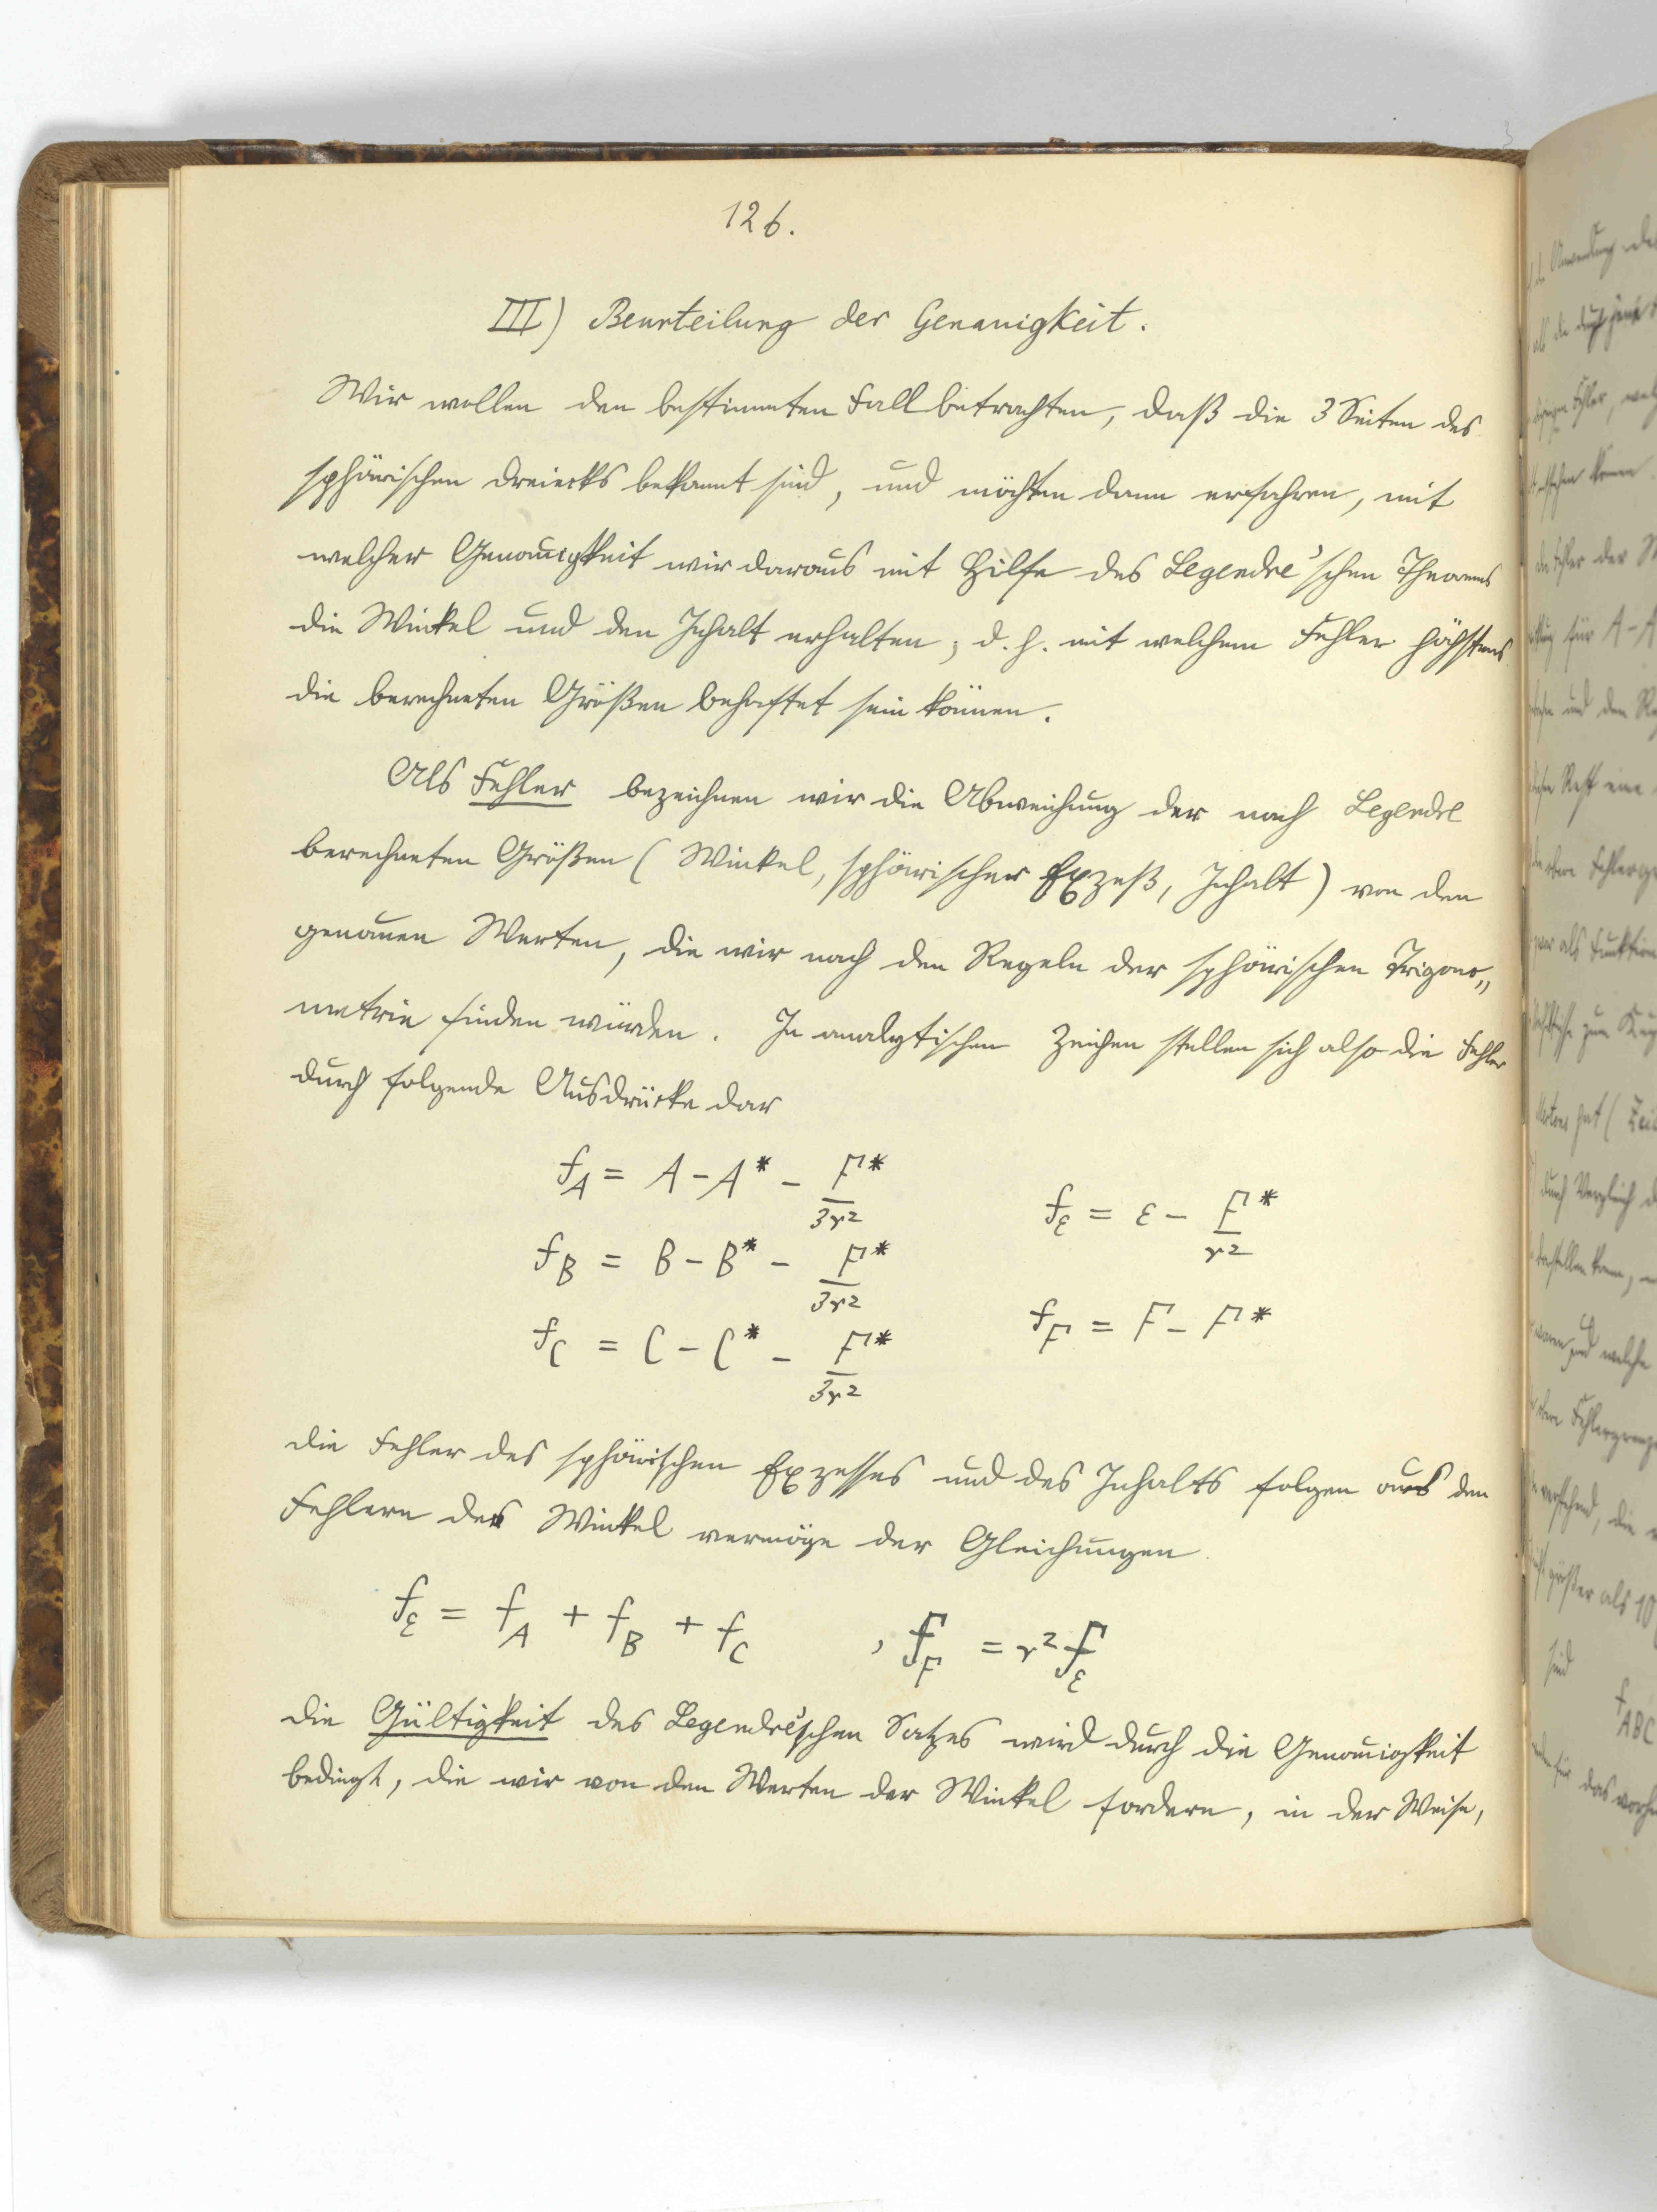 126.
III) Beurteilung der Genauigkeit.
Wir wollen den bestimmten Fall betrachten, daß die 3 Seiten des
sphärischen Dreiecks bekannt sind, und möchten dann erfahren, mit
welcher Genauigkeit wir daraus mit Hilfe des Legendre'schen Theorems
die Winkel und den Inhalt erhalten; d. h. mit welchem Fehler höchstens
die berechneten Größen behaftet sein können.
Als Fehler bezeichnen wir die Abweichung der nach Legendre
berechneten Größen (Winkel, sphärischer Exzeß, Inhalt) von den
genauen Werten, die wir nach den Regeln der sphärischen Trigono„
metrie finden würden. In analytischen Zeichen stellen sich also die Fehler
durch folgende Ausdrücke dar
f_A = A - A* - F*/3r²
f_ε = ε - F*/r²
f_B = B - B* - F*/3r²
f_F = F - F*
f_C = C - C* - F*/3r²
Die Fehler des sphärischen Exzesses und des Inhalts folgen aus den
Fehlern der Winkel vermöge der Gleichungen
f_ε = f_A + f_B + f_C , f_F = r² f_ε
Die Gültigkeit des Legendre'schen Satzes wird durch die Genauigkeit
bedingt, die wir von den Werten der Winkel fordern, in der Weise,